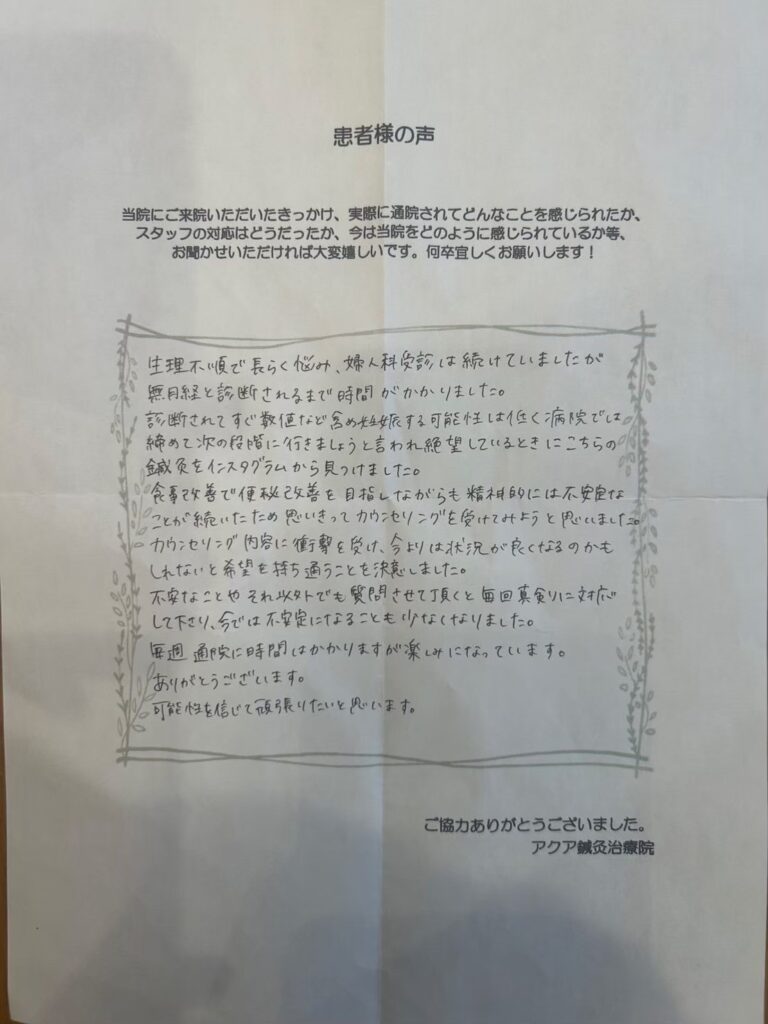 患者様の声
当院にご来院いただいたきっかけ、実際に通院されてどんなことを感じられたか、
スタッフの対応はどうだったか、今は当院をどのように感じているか等、
お聞かせいただければ大変嬉しいです。何卒宜しくお願いします！
生理不順で長らく悩み、婦人科受診は続けていましたが
無月経と診断されるまで時間がかかりました。
診断されてすぐ数値など含め妊娠する可能性は低く病院では
締めて次の段階に行きましょうと言われ絶望しているときにこちらの
鍼灸をインスタグラムから見つけました。
食事改善で便秘改善を目指しながらも精神的には不安定な
ことが続いたため思いきってカウンセリングを受けてみようと思いました。
カウンセリング内容に衝撃を受け、今よりは状況が良くなるのかも
しれないと希望を持ち通うことを決意しました。
不安なことやそれ以外でも質問させて頂くと毎回真剣に対応
して下さり、今では不安定になることも少なくなりました。
毎週通院に時間はかかりますが楽しみになっています。
ありがとうございます。
可能性を信じて頑張りたいと思います。
ご協力ありがとうございました。
アクア鍼灸治療院